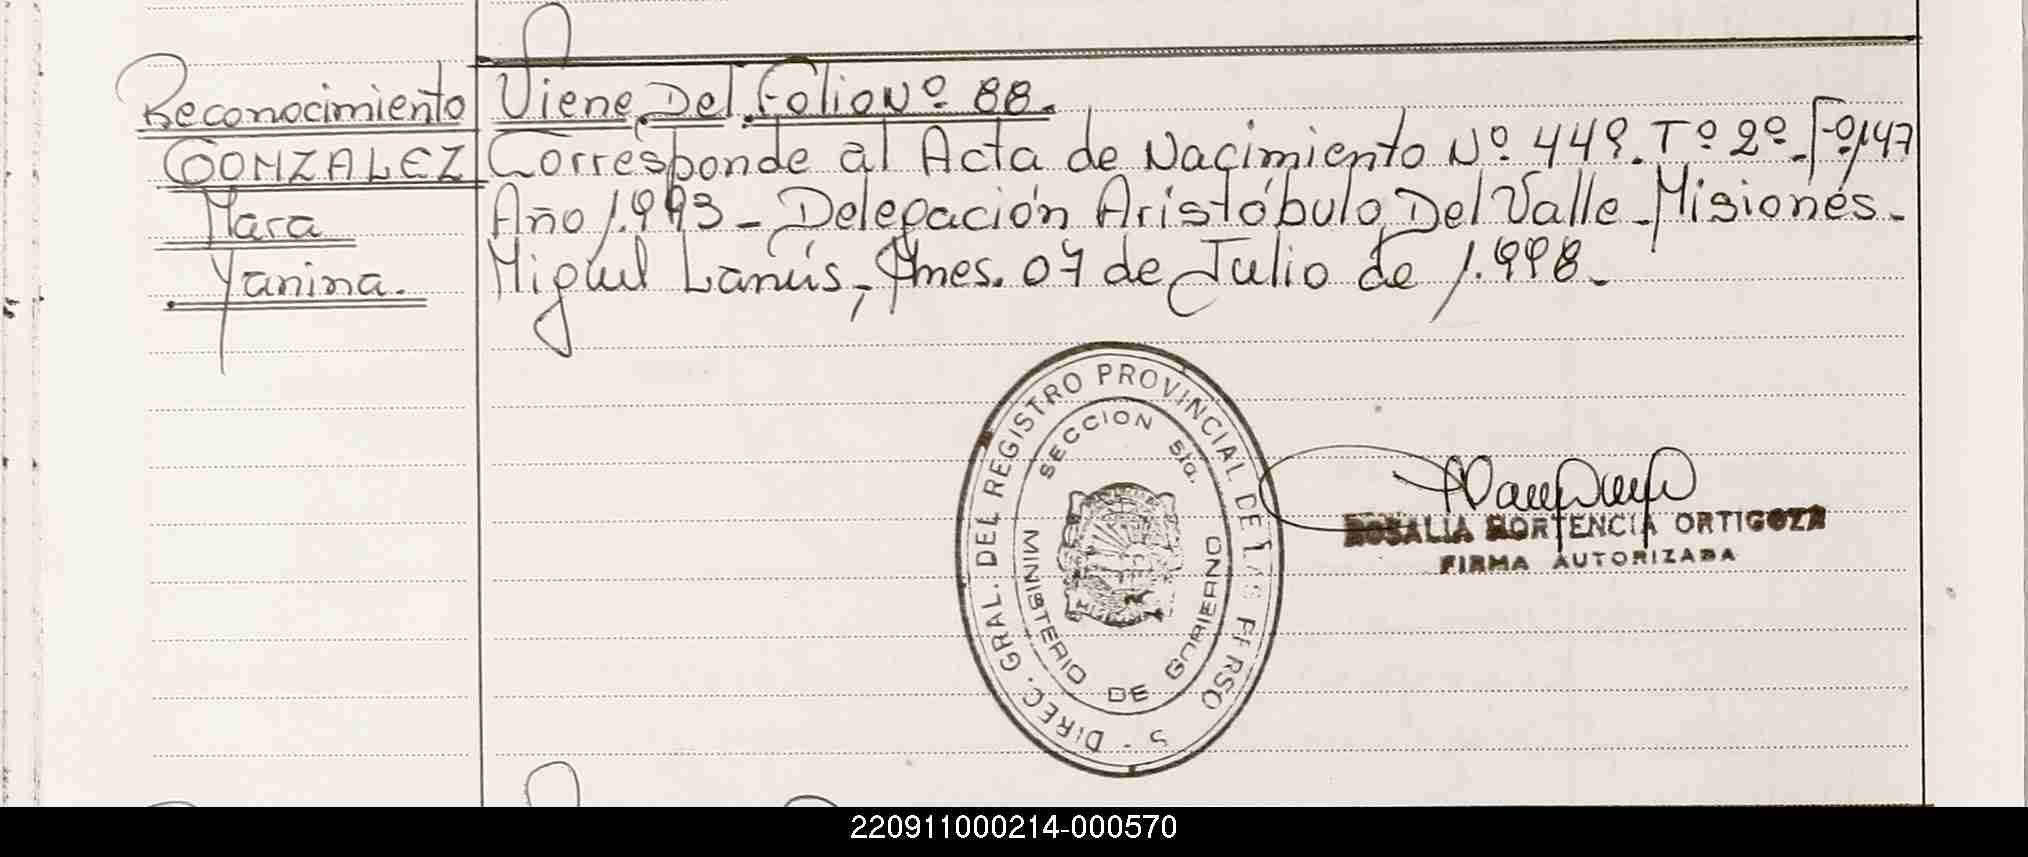 Reconocimiento
GONZALEZ
Mara
Yanina.
Viene Del Folio Nº 88.
Corresponde al Acta de Nacimiento Nº 449. Tº 2º. Fº 147
Año 1.993 - Delegación Aristóbulo Del Valle - Misiones.
Miguel Lanús, Mnes. 07 de Julio de 1.998.
DIREC. GRAL. DEL REGISTRO PROVINCIAL DE LAS PERSO S -
SECCION 5ta.
MINISTERIO DE GOBIERNO
ROSALIA HORTENCIA ORTIGOZA
FIRMA AUTORIZADA
220911000214-000570